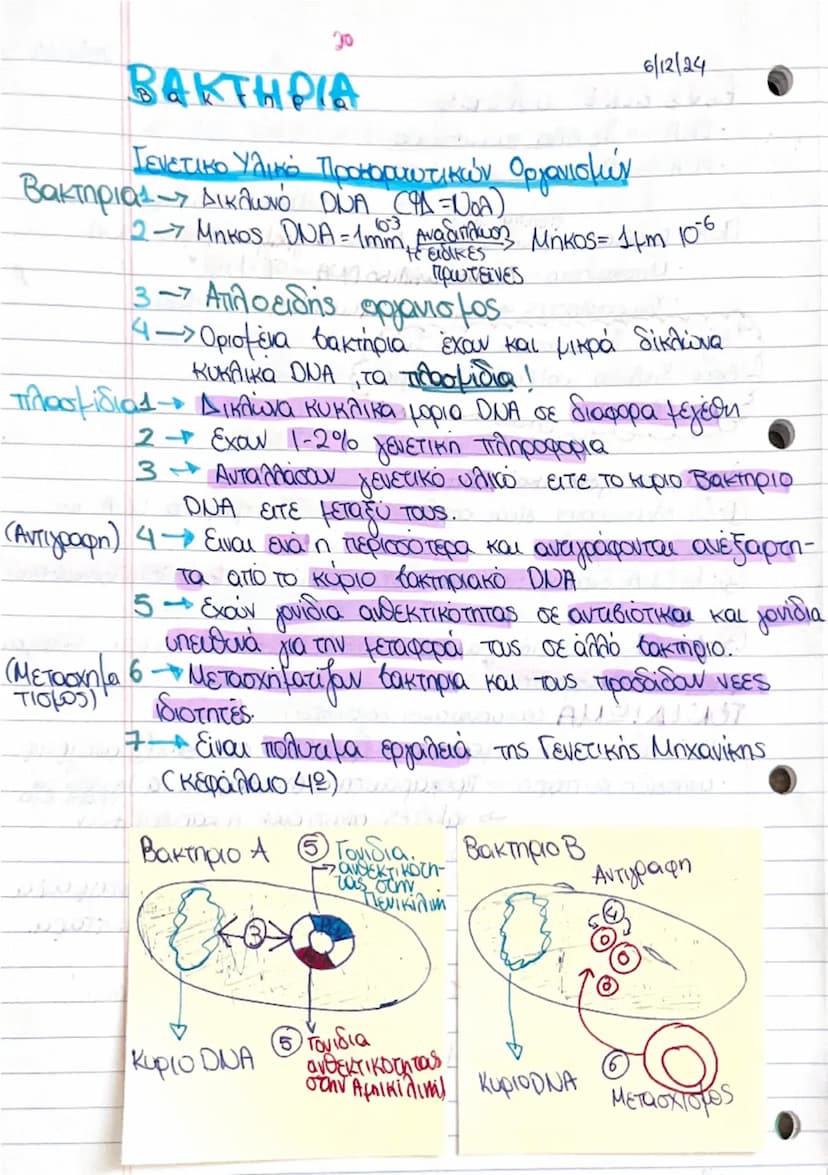 20
6/12/24
ΒΑΚΤΗΡΙΑ
Βακτηρια
Γενετικο Υλικό Προκαρυωτικών Οργανισμών
Βακτηρια 1 → Δικλωνό DNA
2 → Μηκος DNA = 1mm 10-3 Αναδιπλωση Μήκος = 1μm 10-6
ειδικες
πρωτεινες
3 → Απλοειδής οργανισμος
4 → Ορισμένα βακτήρια έχουν και μικρά δίκλωνα
κυκλικά DNA, τα πλασμίδια!
πλασμίδια 1 → Δικλωνα κυκλικα μορια DNA σε διαφορα μεγέθη
2 → Εχουν 1-2% γενετική πληροφορια
3 → Ανταλλάσουν γενετικό υλικό ειτε το κυριο Βακτηριο
DNA ειτε μεταξύ τους.
(Αντιγραφη) 4 → Ειναι ενά η περισσότερα και αντιγράφονται ανεξαρτη-
τα από το κύριο βακτηριακό DNA
5 → Εχουν γονίδια ανθεκτικότητας σε αντιβιότικα και γονίδια
υπευθυνά για την μεταφορά τους σε άλλο βακτήριο.
(Μετασχημα 6 → Μετασχηματίζουν βακτηρια και τους προσδίδουν νεες
τισμος) ιδιοτητές.
7 → Είναι πολυτιμα εργαλειά της Γενετικής Μηχανικής
(κεφάλαιο 4ο)
Βακτηριο Α
5 Γονιδια
ανθεκτικοτη-
τας στην
Πενικιλινη
3
Κυριο DNA
5 Γονιδια
ανθεκτικοτητας
στην Αμπικιλινη
Βακτηριο Β
Αντιγραφη
4
6
Κυριο DNA
Μετασχισμος